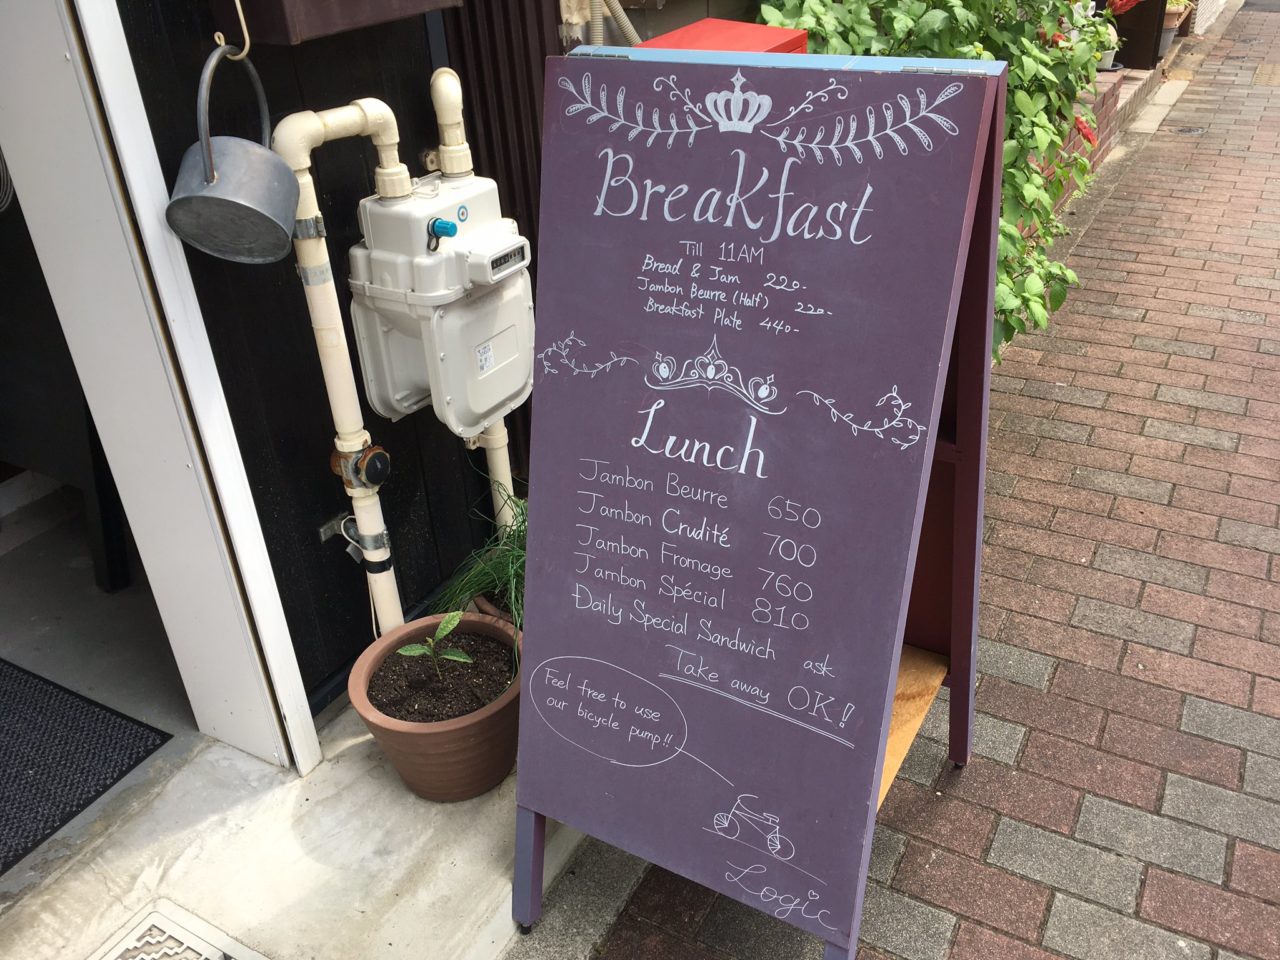 Breakfast
Till 11AM
Bread & Jam 220-
Jambon Beurre (Half) 220-
Breakfast Plate 440-
Lunch
Jambon Beurre 650
Jambon Crudité 700
Jambon Fromage 760
Jambon Spécial 810
Daily Special Sandwich ask
Take away OK!
Feel free to use
our bicycle pump!!
Logic